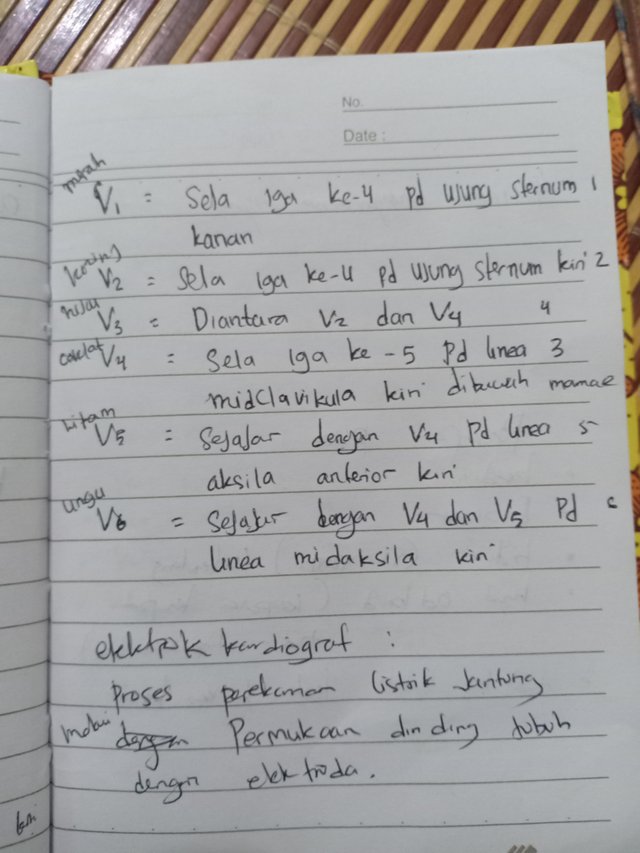 No.
Date :
merah
V1 = Sela iga ke-4 pd ujung sternum 1
kanan
kuning
V2 = Sela iga ke-4 pd ujung sternum kiri 2
hijau
V3 = Diantara V2 dan V4 4
cokelat V4 = Sela iga ke-5 Pd linea 3
midclavikula kiri dibawah mamae
hitam
V5 = Sejajar dengan V4 Pd linea 5
aksila anterior kiri
ungu
V6 = Sejajar dengan V4 dan V5 Pd 6
linea midaksila kiri
elektrok kardiograf :
Proses perekaman listrik Jantung
melalui dengan Permukaan dinding tubuh
dengan elektroda.